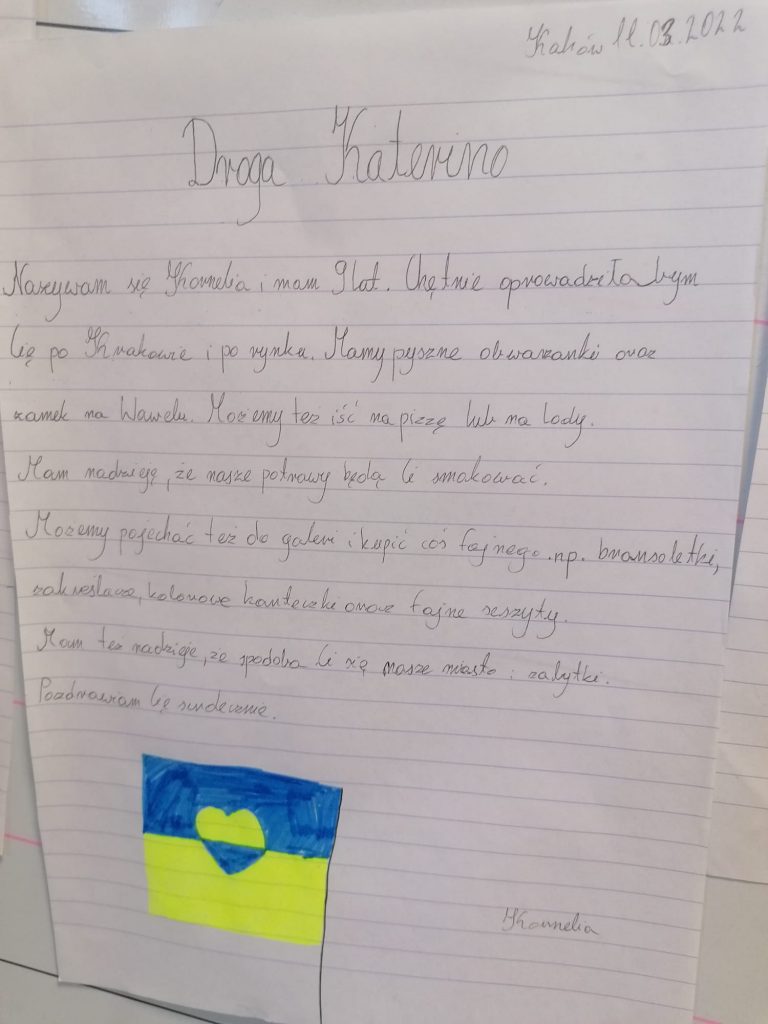 Kraków 11.03.2022
Droga Katerino
Nazywam się Kornelia i mam 9 lat. Chętnie oprowadziła bym
Cię po Krakowie i po rynku. Mamy pyszne obwarzanki oraz
zamek na Wawelu. Możemy też iść na pizzę lub na lody.
Mam nadzieję, że nasze potrawy będą Ci smakować.
Możemy pojechać też do galeri i kupić coś fajnego np. bransoletki,
zakreślacze, kolorowe karteczki oraz fajne zeszyty.
Mam też nadzieje, że spodoba Ci się nasze miasto i zabytki.
Pozdrawiam Cię serdecznie.
Kornelia